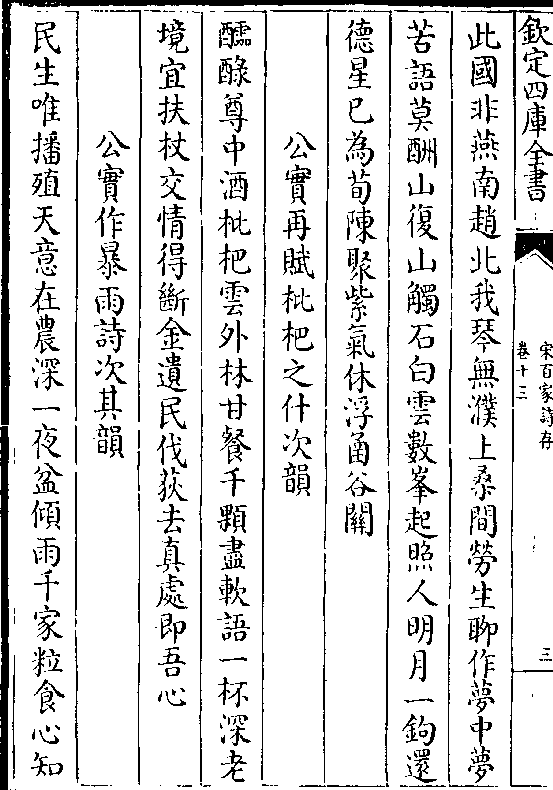 欽定四庫全書
宋百家詩存
卷十三
三
此國非燕南趙北我琴無濮上桑間勞生聊作夢中夢
苦語莫酬山復山觸石白雲數峯起照人明月一鉤還
德星已為荀陳聚紫氣休浮函谷關
公實再賦枇杷之什次韻
醽醁尊中酒枇杷雲外林甘餐千顆盡軟語一杯深老
境宜扶杖交情得斷金遺民伐荻去真處即吾心
公實作暴雨詩次其韻
民生唯播殖天意在農深一夜盆傾雨千家粒食心知